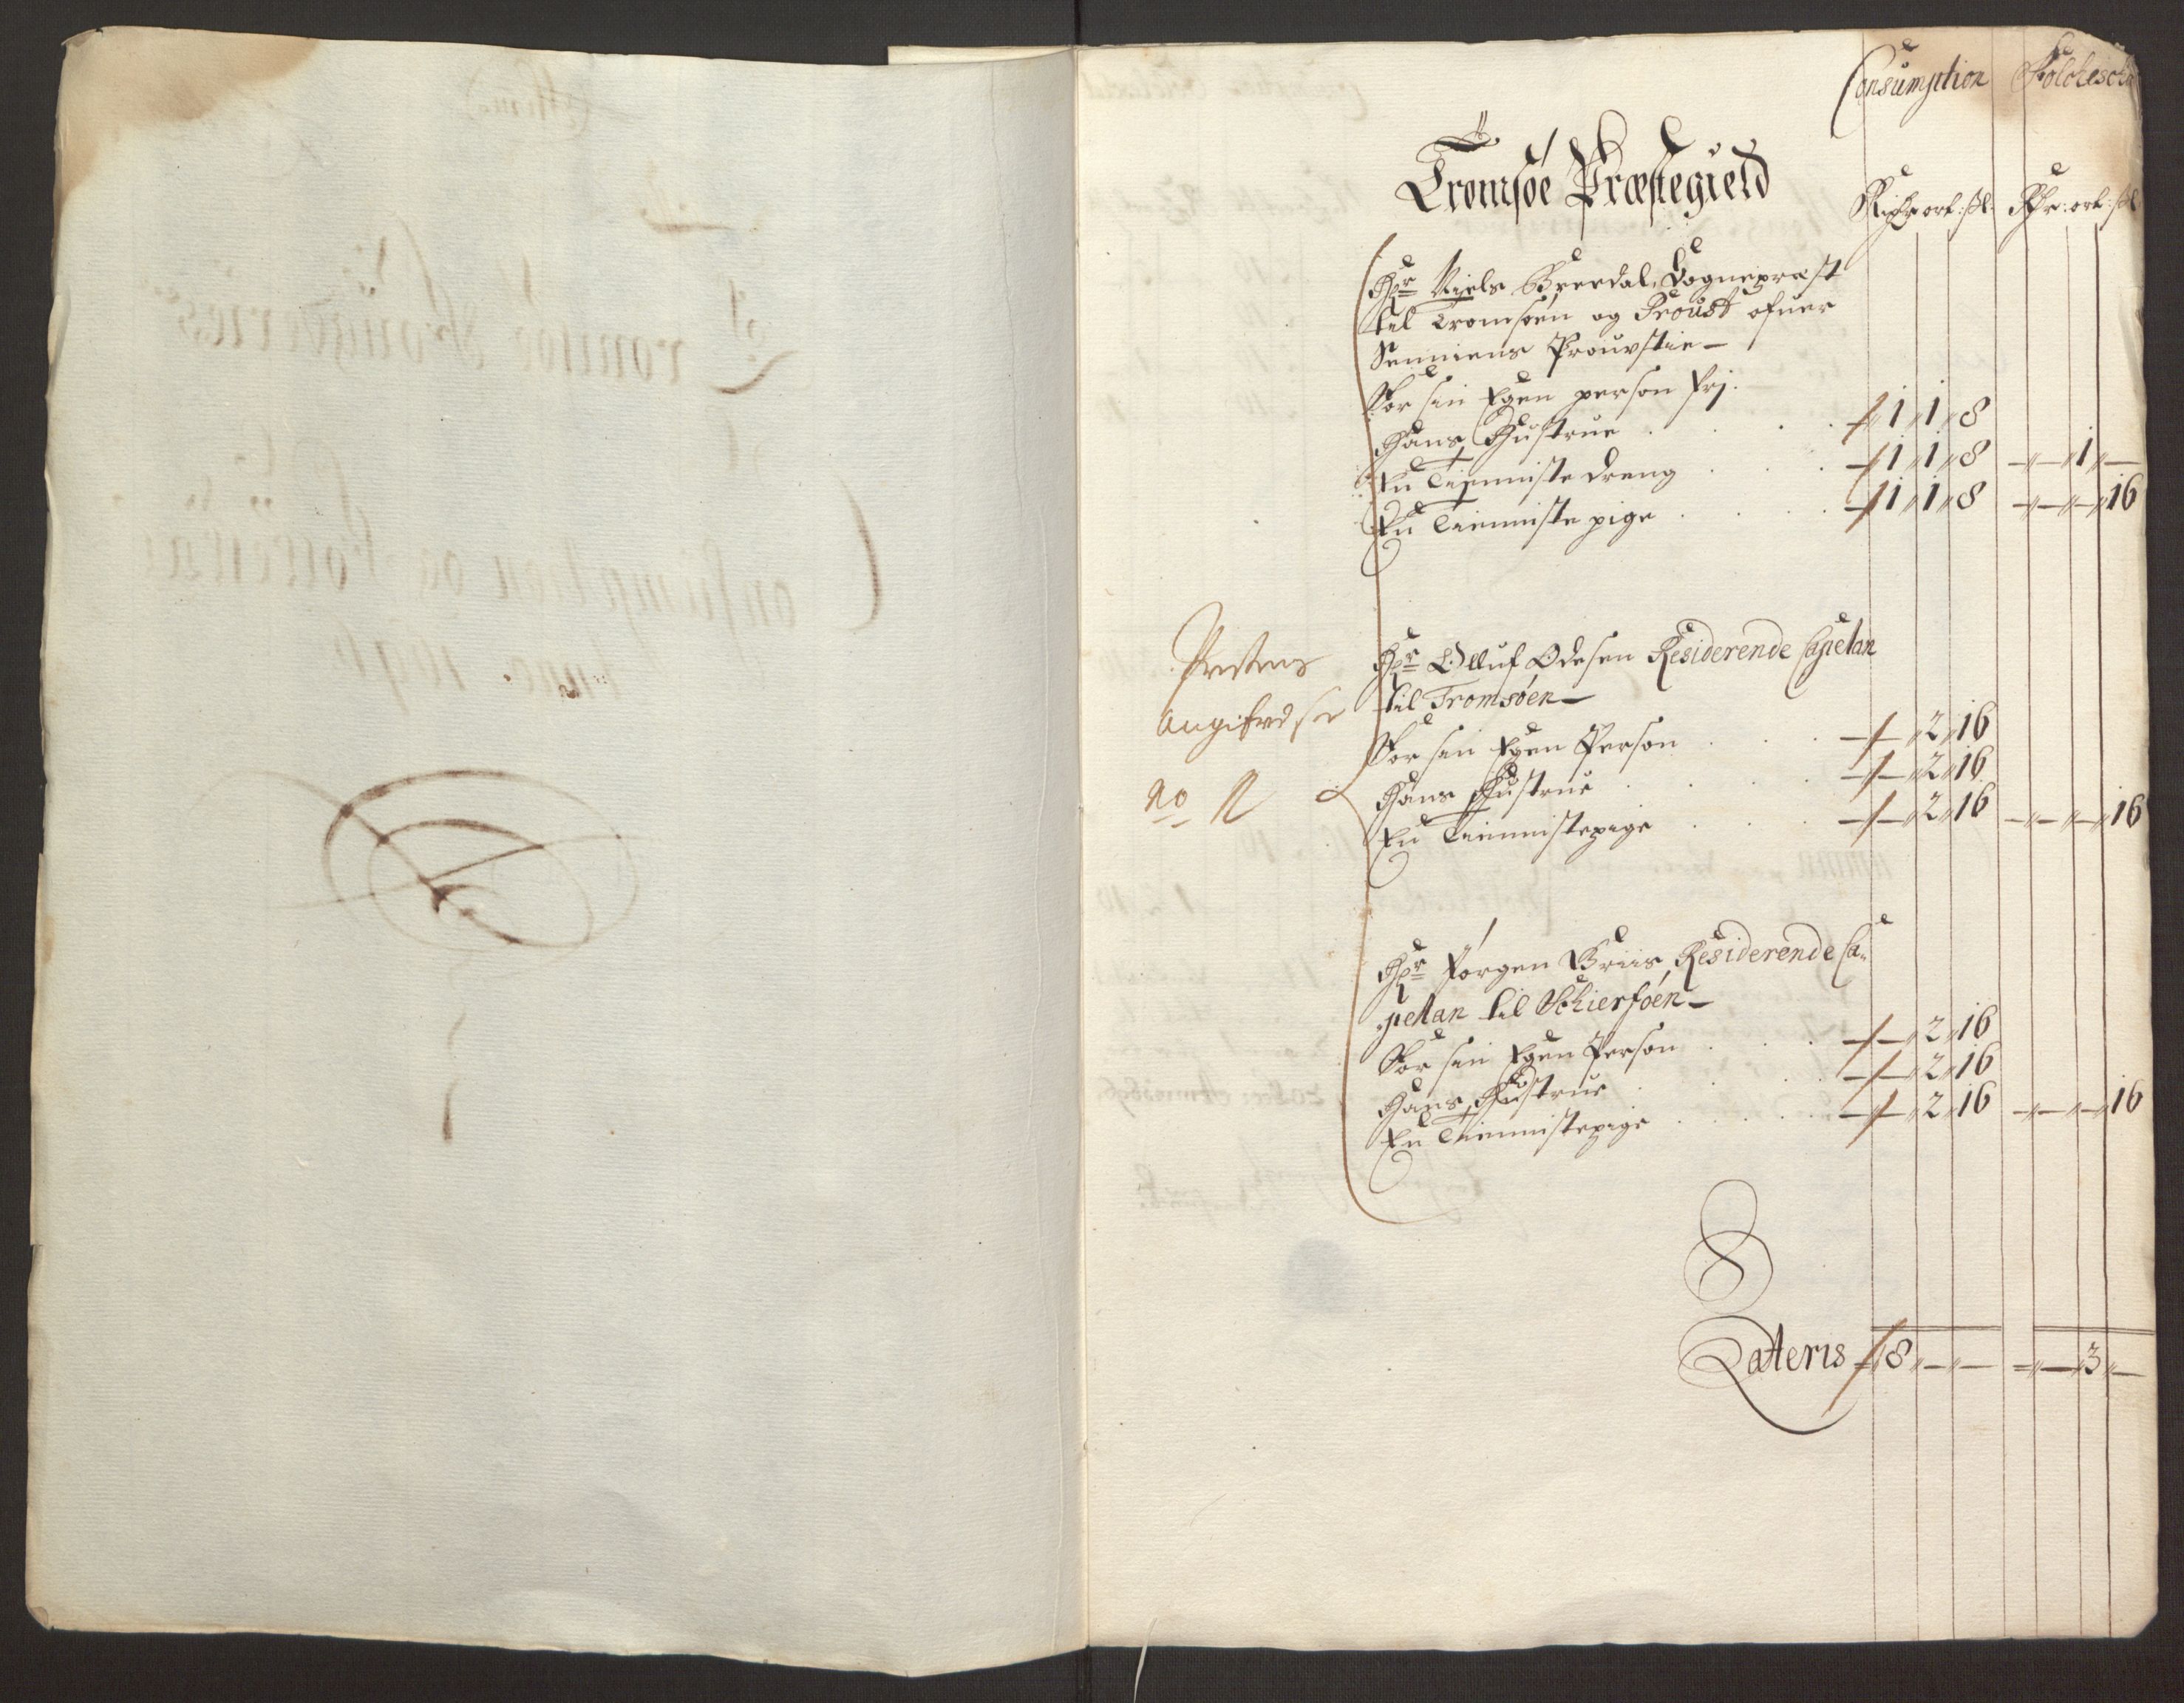 Consumption Folcheschat
Tromsøe Præstegield
Richdr ort: sk: Rdr: ort: sk
Hr Niels Breedal, Sognepræst
til Tromsøen og Proust ofuer
Senniens Prouvstie —
For sin Egen person frj.
Hans Hustrue . . . 1 „ 1 „ 8
En Tienniste dreng . . 1 „ 1 „ 8 — „ — „ 1 „ —
En Tienniste pige . . . 1 „ 1 „ 8 — „ — „ — „ 16
Prestens
angifvelse
No
Hr Olluf Odesen Residerende Capelan
til Tromsøen —
For sin Egen Person . . . — „ 2 „ 16
Hans Hustrue . . . — „ 2 „ 16
En Tiennistepige . . . — „ 2 „ 16 — „ — „ — „ 16
Hr Jørgen Briis, Residerende Ca-
pellan til Schierføen —
For sin Egen Person . . . — „ 2 „ 16
Hans Hustrue . . . — „ 2 „ 16
En Tiennistepige . . . — „ 2 „ 16 — „ — „ — „ 16
Latteris 8 „ — „ — = „ — „ 3 „ —